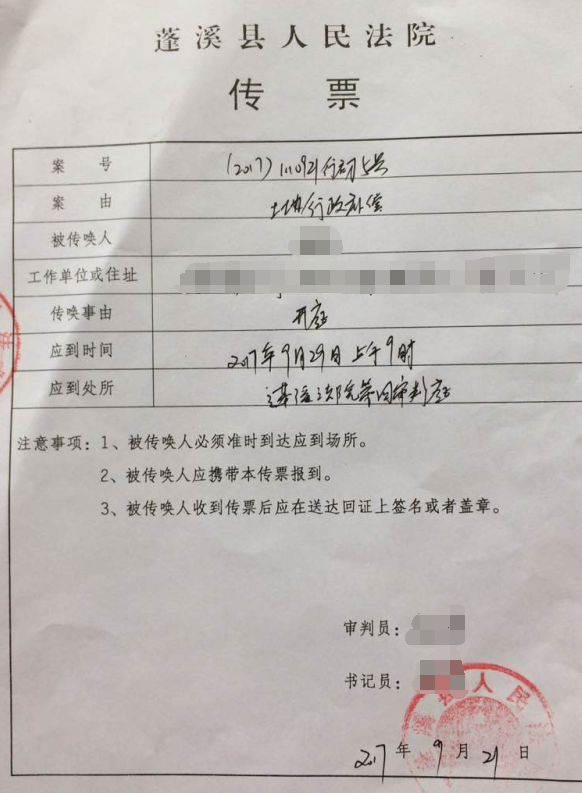 蓬溪县人民法院
传 票
案 号 (2017)川0921行初5号
案 由 土地行政补偿
被传唤人
工作单位或住址
传唤事由 开庭
应到时间 2017年9月29日上午9时
应到处所 蓬溪法院第 审判庭
注意事项：1、被传唤人必须准时到达应到场所。
2、被传唤人应携带本传票报到。
3、被传唤人收到传票后应在送达回证上签名或者盖章。
审判员：
书记员：
溪县人民
2017年9月21日